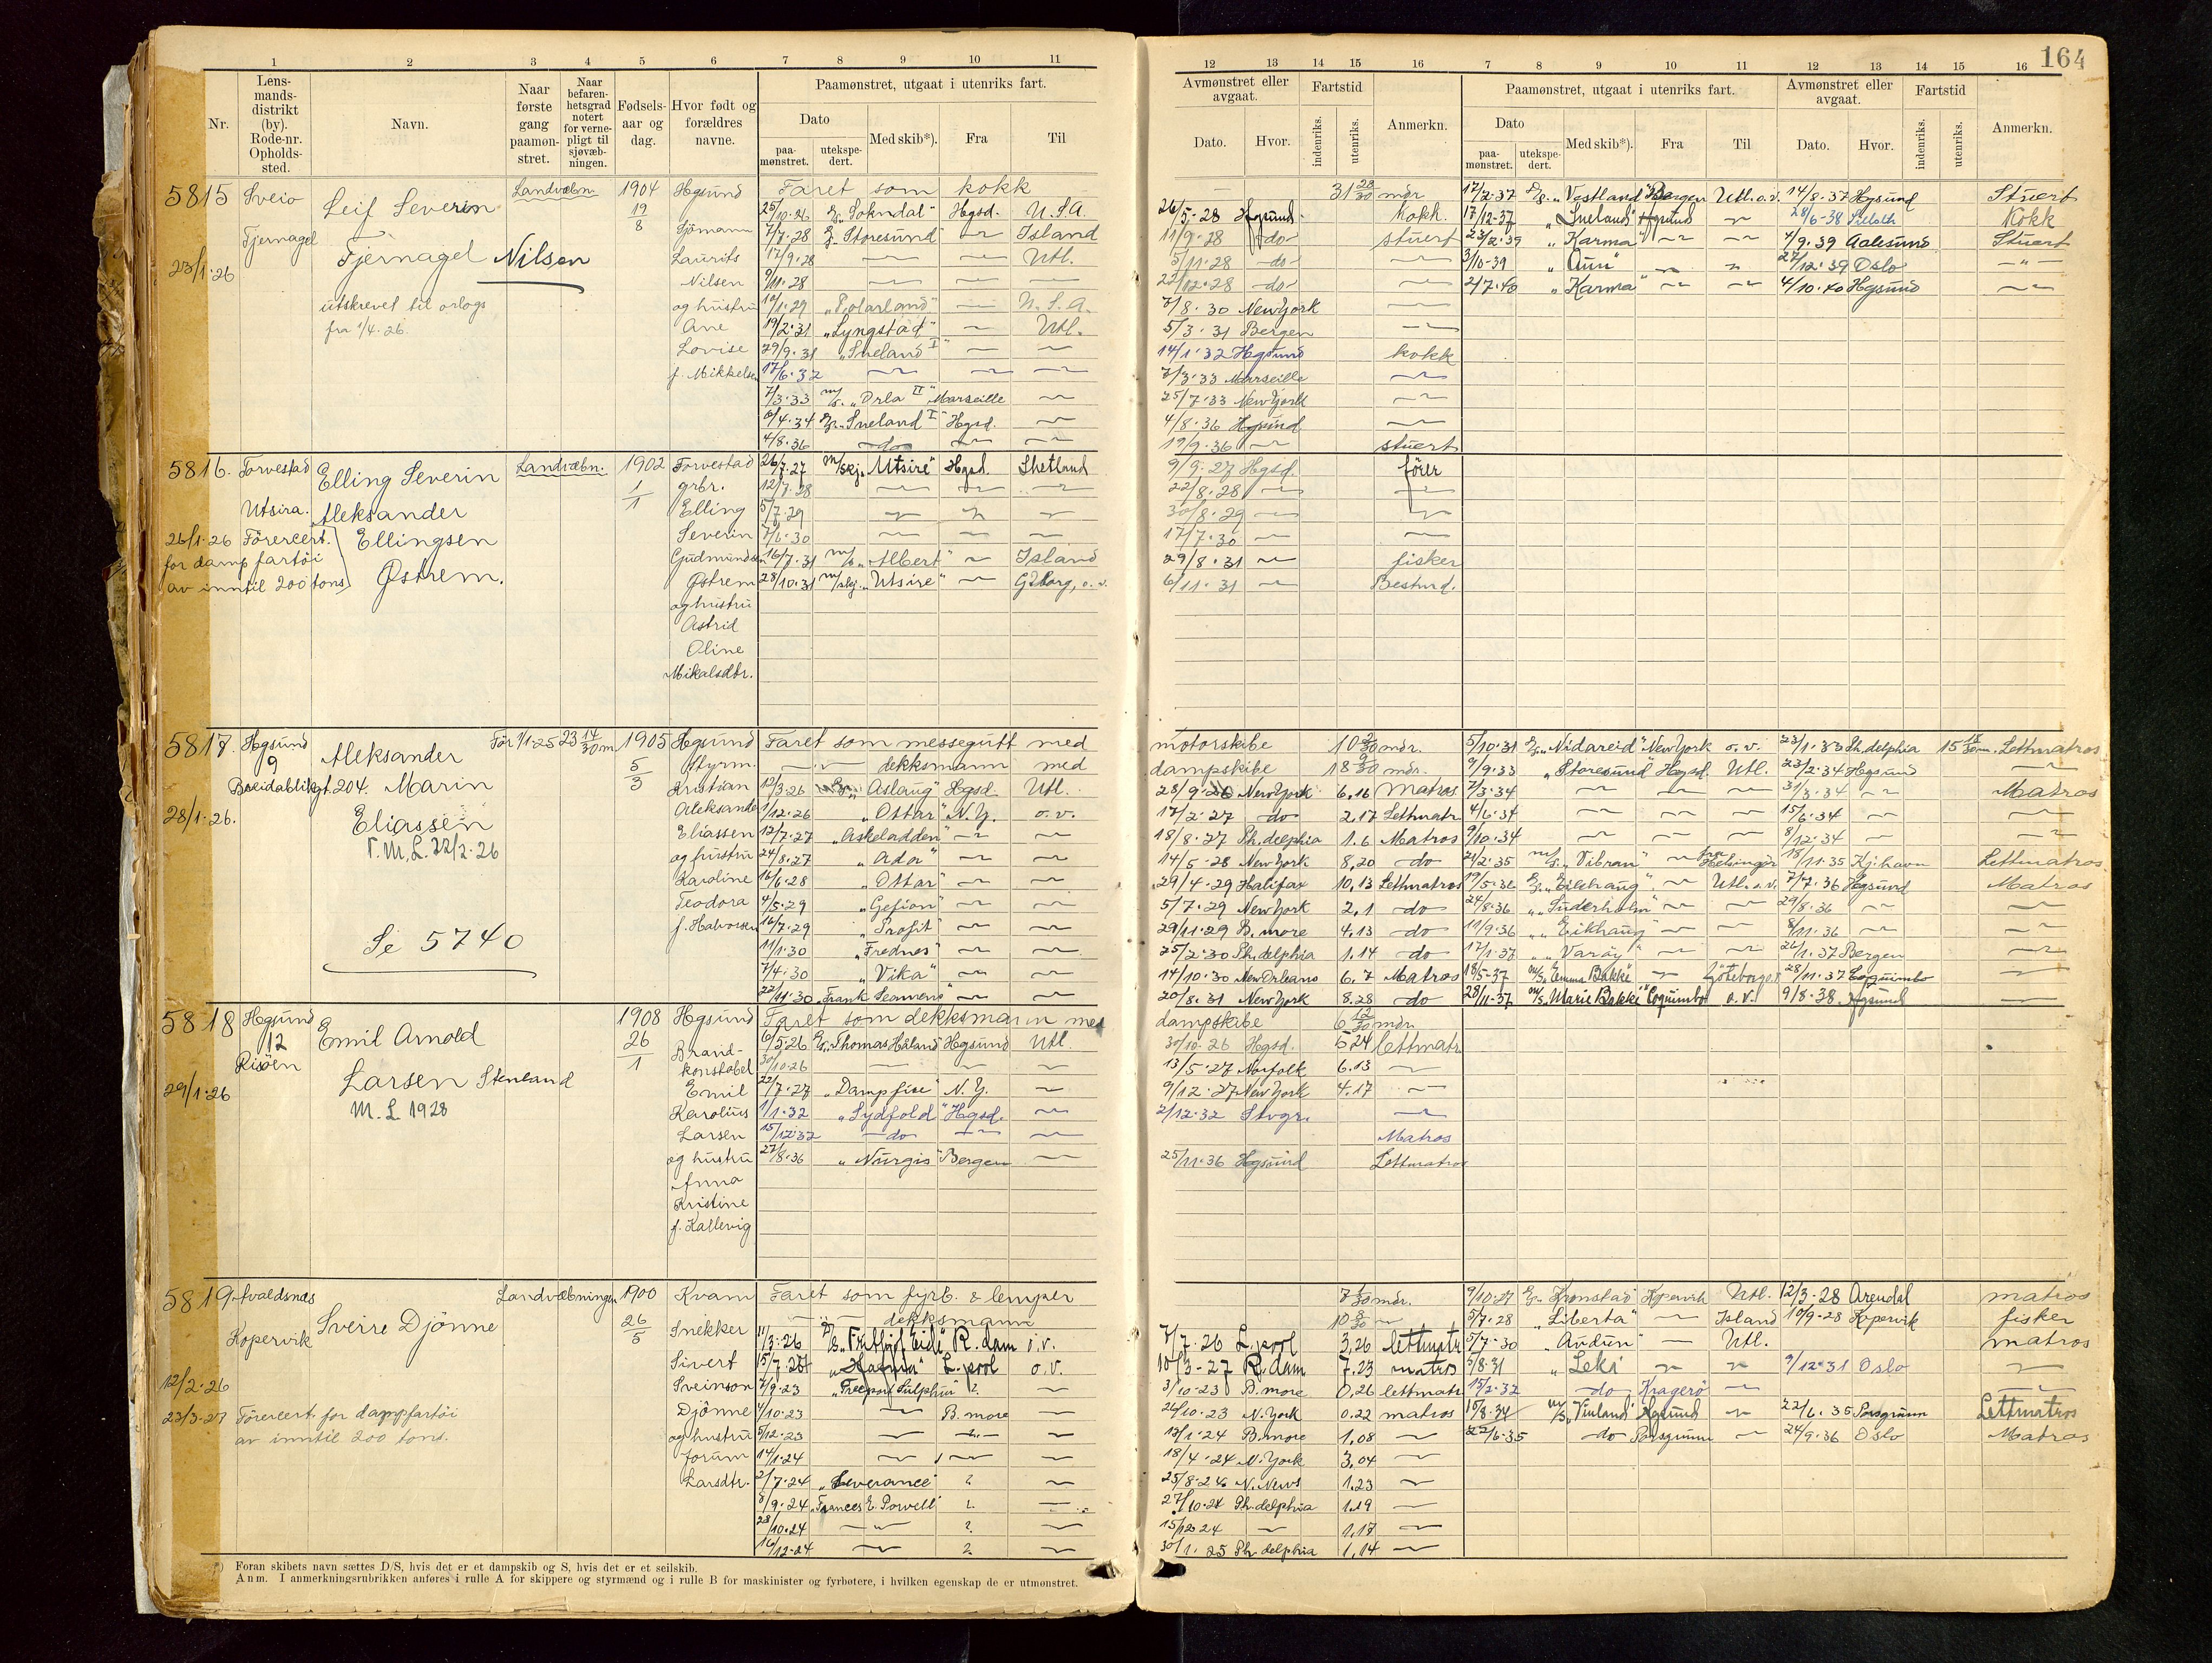 1 2 3 4 5 6 7 8 9 10 11
Nr.
Lens-
mands-
distrikt
(by).
Rode-nr.
Opholds-
sted.
Navn.
Naar
første
gang
paamøn-
stret.
Naar
befaren-
hetsgrad
notert
for verne-
pligt til
sjøvæb-
ningen.
Fødsels-
aar og
dag.
Hvor født og
forældres
navne.
Paamønstret, utgaat i utenriks fart.
Dato
paa-
mønstret.
utekspe-
dert.
Med skib*).
Fra
Til
5815 Sveio Leif Severin Landvæbn. 1904 Hgsund Faret som kokk
19/8
25/10-26 D/S. „Sokndal" Hgsd. U.S.A.
Fjernagel Sjømann 7/7-28 „Storesund" — Island
23/1-26 Fjernagel Nilsen Laurits 17/9-28 — — Utl.
Nilsen 9/11-28 — — —
utskrevet til orlogs og hustru 19/1-29 „Polarland" — U.S.A.
fra 1/4-26. Ane 19/2-31 „Lyngstad" — Utl.
Lovise 29/9-31 „Sneland I" — —
f. Mikkelsen 17/6-32 — — —
7/3-33 m/s. „Orla II" Marseille —
6/4-34 D/S. „Sneland I" Hgsd. —
4/8-36 — do — —
5816. Torvestad Elling Severin Landvæbn. 1902 Torvestad 26/7-27 m/skj. „Utsire" Hgsd. Shetland
1/1 grbr. 12/7-28 — — —
Utsira. Aleksander Elling 5/7-29 — — —
26/1-26 Førercert. Ellingsen Severin 7/6-30 — — —
for damp fartøi Gudmundsen 16/7-31 m/s. „Albert" — Island
av inntil 200 tons Østrem. Østrem 28/10-31 m/skj. „Utsire" — Gtborg, o.v.
og hustru
Astrid
Oline
Mikalsdtr.
5817. Hgsund Aleksander Før 1/1-25 23 14/30 m 1905 Hgsund Faret som messegutt med
9 5/3 Styrm. — " — dekksmann med
Breidablikgt. 204. Marin Kristian 12/3-26 „Aslaug" Hgsd. Utl.
28/1-26. Eliassen Aleksander 1/12-26 „Ottar" N.Y. o.v.
V.M.L. 22/2-26 Eliassen 12/7-27 „Askeladden" — —
og hustru 24/8-27 „Ada" — —
Karoline 16/6-28 „Ottar" — —
Teodora 4/5-29 „Gefion" — —
f. Halvorsen 16/7-29 „Profit" — —
Se 5740 11/1-30 „Frednes" — —
7/4-30 „Vika" — —
22/11-30 „Frank Seamens" — —
5818 Hgsund Emil Arnold 1908 Hgsund Faret som dekksmann med
12 26/1 6/5-26 D/S. „Thomas Håland" Hgsund Utl.
Risöen Brand-
konstabel 30/10-26 — — —
29/1-26 Larsen Stenland Emil 22/7-27 „Dampfire" N.Y. —
M. L 1928 Karolius 1/1-32 „Sydfold" Hgsd. —
Larsen 15/12-32 — do — —
og hustru 27/8-36 „Nurgis" Bergen —
Anna
Kristine
f. Kallevig
5819 Avaldsnes Sverre Djönne Landvæbningen 1900 Kvam Faret som fyrb. & lemper
26/5 — " — dekksmann
Kopervik Snekker 11/3-26 D/S. „Fritjof Eide" R.dam o.v.
Sivert 15/7-26 „Hasma" L.pool o.v.
12/2-26 Sveinson 7/9-23 „Freeport Sulphur" ? —
23/3-27 Førercert. for dampfartøi Djönne 4/10-23 — B.more —
av inntil 200 tons. og hustru 5/12-23 — — —
Jorunn 14/1-24 — — —
Larsdtr. 2/7-24 „Severance" ? —
8/9-24 „Frances E. Powell" ? —
28/10-24 — ? —
16/12-24 — ? —
*) Foran skibets navn sættes D/S, hvis det er et dampskib og S, hvis det er et seilskib.
Anm. I anmerkningsrubrikken anføres i rulle A for skippere og styrmænd og i rulle B for maskinister og fyrbøtere, i hvilken egenskap de er utmønstret.
164
12 13 14 15 16 7 8 9 10 11 12 13 14 15 16
Avmønstret eller
avgaat.
Fartstid
Dato. Hvor. indenriks. utenriks. Anmerkn.
Paamønstret, utgaat i utenriks fart.
Dato
paa-
mønstret.
utekspe-
dert.
Med skib*). Fra Til
Avmønstret eller
avgaat.
Fartstid
Dato. Hvor. indenriks. utenriks. Anmerkn.
— 31 28/30 mdr 17/2-37 D/S. „Vestland" Bergen Utl. o.v. 14/8-37 Hgsund Stuert
26/5-28 Hgsund. kokk. 17/12-37 „Sneland" Hgsund — 28/6-38 Kokk
11/9-28 do stuert 23/2-39 „Karma" — — 4/9.39 Aalesund Stuert
5/11-28 do — 3/10-39 „Aun" — — 27/12-39 Oslo — " —
22/12-28 do — 2/7-40 „Karma" — — 4/10.40 Hgsund —
7/8-30 New York —
5/3-31 Bergen —
14/1-32 Hgsund kokk
7/3-33 Marseille —
25/7-33 New York —
4/8-36 Hgsund —
19/9-36 — stuert
9/9-27 Hgsd. fører
22/8-28 — —
30/8-29 — —
17/7-30 — —
29/8-31 — fisker
6/11-31 — Bestmd.
motorskibe 10 mdr. 5/10-31 D/S. „Nidareid" New York o.v. 23/1-33 Ph.delphia 15 Lettmatros
dampskibe 18 9/30 mdr. 9/9-33 „Storesund" Hgsd. Utl. 23/2-34 Hgsund —
28/9-26 New York 6.16 Matros 7/3-34 — — — 31/3-34 — Matros
17/2-27 do 2.17 Lettmatr. 4/6-34 — — — 15/6-34 — —
18/8-27 Ph.delphia 1.6 Matros 9/10-34 — — — 8/12-34 — —
14/5-28 New York 8.20 do 21/2-35 m/s. „Vibran" — Helsingør 15/11-35 Kj.havn Lettmatros
29/4-29 Halifax 10.13 Lettmatros 19/5-36 D/S. „Eikhaug" — Utl. o.v. 7/7-36 Hgsund Matros
5/7-29 New York 2.1 do 24/8-36 „Suderholm" — — 29/8-36 — —
29/11-29 B.more 4.13 do 11/9-36 „Eikhaug" — — 8/11-36 — —
25/2-30 Ph.delphia 1.14 do 17/1-37 „Varøy" — — 26/1-37 Bergen —
14/10-30 New Orleans 6.7 Matros 18/5-37 M/S. „Emma Bakke" — Göteborg 28/11-37 Coquimbo —
20/8-31 New York 8.28 do 28/11-37 M/S. „Marie Bakke" Coquimbo o.v. 9/8-38 Hgsund —
dampskibe 6 12/30 mdr.
30/10-26 Hgsd. 5.24 lettmatr.
13/5-27 Norfolk 6.13 —
9/12-27 New York 4.17 —
2/12-32 Stvgr. —
Matros
25/11-36 Hgsund Lettmatros
7/30 mdr. 9/10-27 D/S. „Kronstad" Kopervik Utl. 12/3-28 Arendal matros
10 8/30 — 5/7-28 „Liberta" — Island 10/9-28 Kopervik fisker
7/7-26 L.pool 3.26 lettmatr. 5/7-30 „Audun" — Utl. matros
10/3-27 R.dam 7.23 matros 5/8-31 „Leks" — — 9/12-31 Oslo —
3/10-23 B.more 0.26 lettmatr. 15/2-32 do Kragerö — —
26/10-23 N.York 0.22 matros 15/8-34 M/S. „Vinland" Hgsund — 22/6-35 Porsgrunn Lettmatros
13/1-24 B.more 1.08 — 22/6-35 do Porsgrunn — 24/9-36 Oslo Matros
18/4-24 N.York 3.04 —
25/8-24 N.News 1.23 —
27/10-24 Ph.delphia 1.19 —
15/12-24 — 1.17 —
30/1-25 Ph.delphia 1.14 —